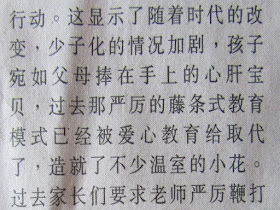 行动。这显示了随着时代的改
变，少子化的情况加剧，孩子
宛如父母捧在手上的心肝宝
贝，过去那严厉的藤条式教育
模式已经被爱心教育给取代
了，造就了不少温室的小花。
过去家长们要求老师严厉鞭打